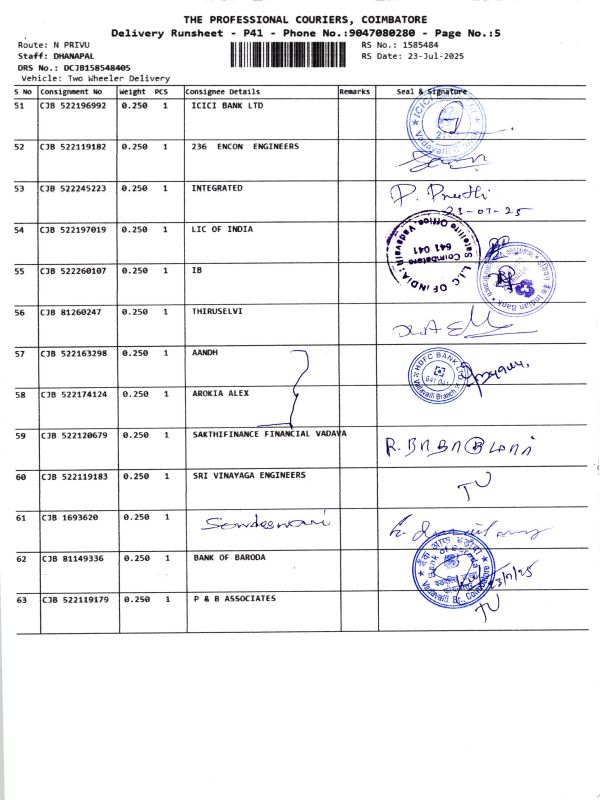 THE PROFESSIONAL COURIERS, COIMBATORE
Delivery Runsheet - P41 - Phone No.:9047080280 - Page No.:5
Route: N PRIVU RS No.: 1585484
Staff: DHANAPAL RS Date: 23-Jul-2025
DRS No.: DCJB158548405
Vehicle: Two Wheeler Delivery
S No Consignment No Weight PCS Consignee Details Remarks Seal & Signature
51 CJB 522196992 0.250 1 ICICI BANK LTD
Vadavalli Branch
52 CJB 522119182 0.250 1 236 ENCON ENGINEERS
53 CJB 522245223 0.250 1 INTEGRATED P. Preethi
23-07-25
54 CJB 522197019 0.250 1 LIC OF INDIA
L.I.C. OF INDIA Satellite Office, Vadavalli
Coimbatore
641 041
55 CJB 522260107 0.250 1 IB
Indian Bank
56 CJB 81260247 0.250 1 THIRUSELVI
57 CJB 522163298 0.250 1 AANDH
HDFC BANK LTD
641 041
Vadavalli Branch
58 CJB 522174124 0.250 1 AROKIA ALEX
59 CJB 522120679 0.250 1 SAKTHIFINANCE FINANCIAL VADAVA
60 CJB 522119183 0.250 1 SRI VINAYAGA ENGINEERS TV
61 CJB 1693620 0.250 1
62 CJB 81149336 0.250 1 BANK OF BARODA
बैंक ऑफ़ बड़ौदा
Bank of Baroda
Vadavalli Br., Coimbatore
23/7/25
63 CJB 522119179 0.250 1 P & B ASSOCIATES TV